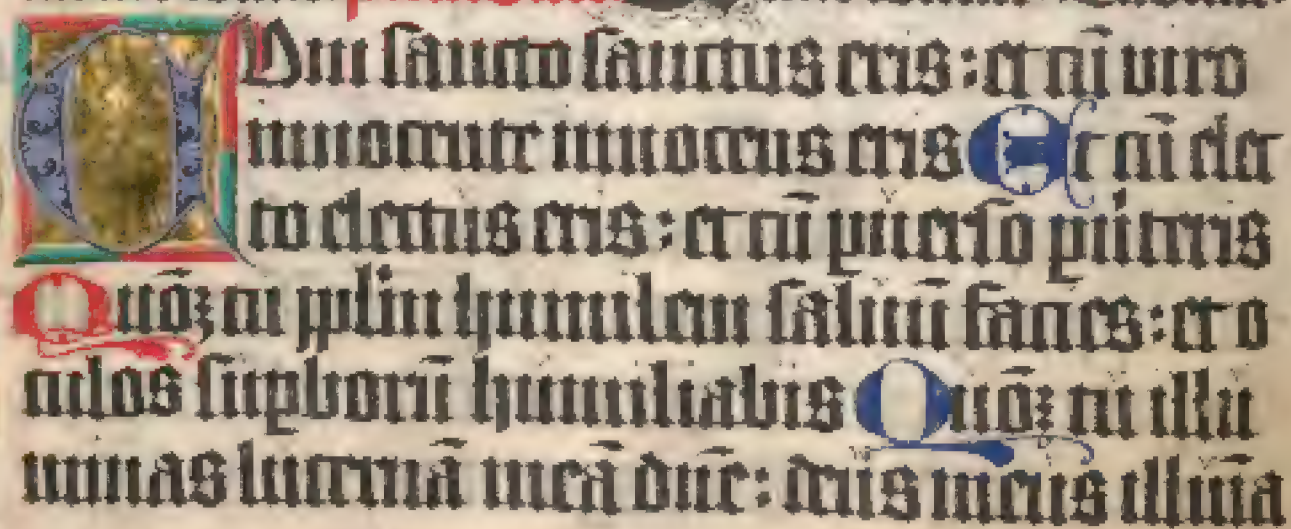 CUm sancto sanctus eris : et cū viro
innocente innocens eris Et cū elec
to electus eris : et cū ꝑuerso ꝑũteris
Quōꝫ tu pplm humilem saluū facies : et o
culos suꝑborū humiliabis Quōꝫ tu illu
minas lucernā meā dñe : deus meus illumīa